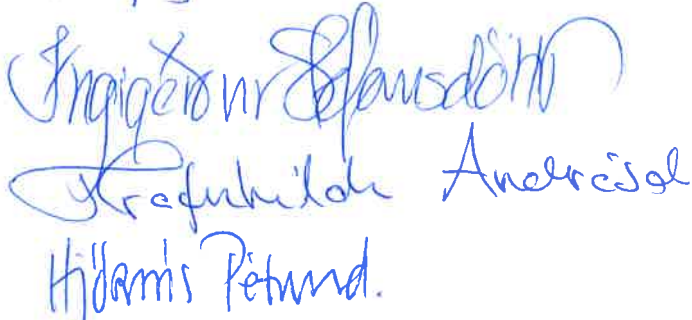 Ingigerður Stefansdóttir
Hrafnhildur Andrésd
Hjördís Péturd.